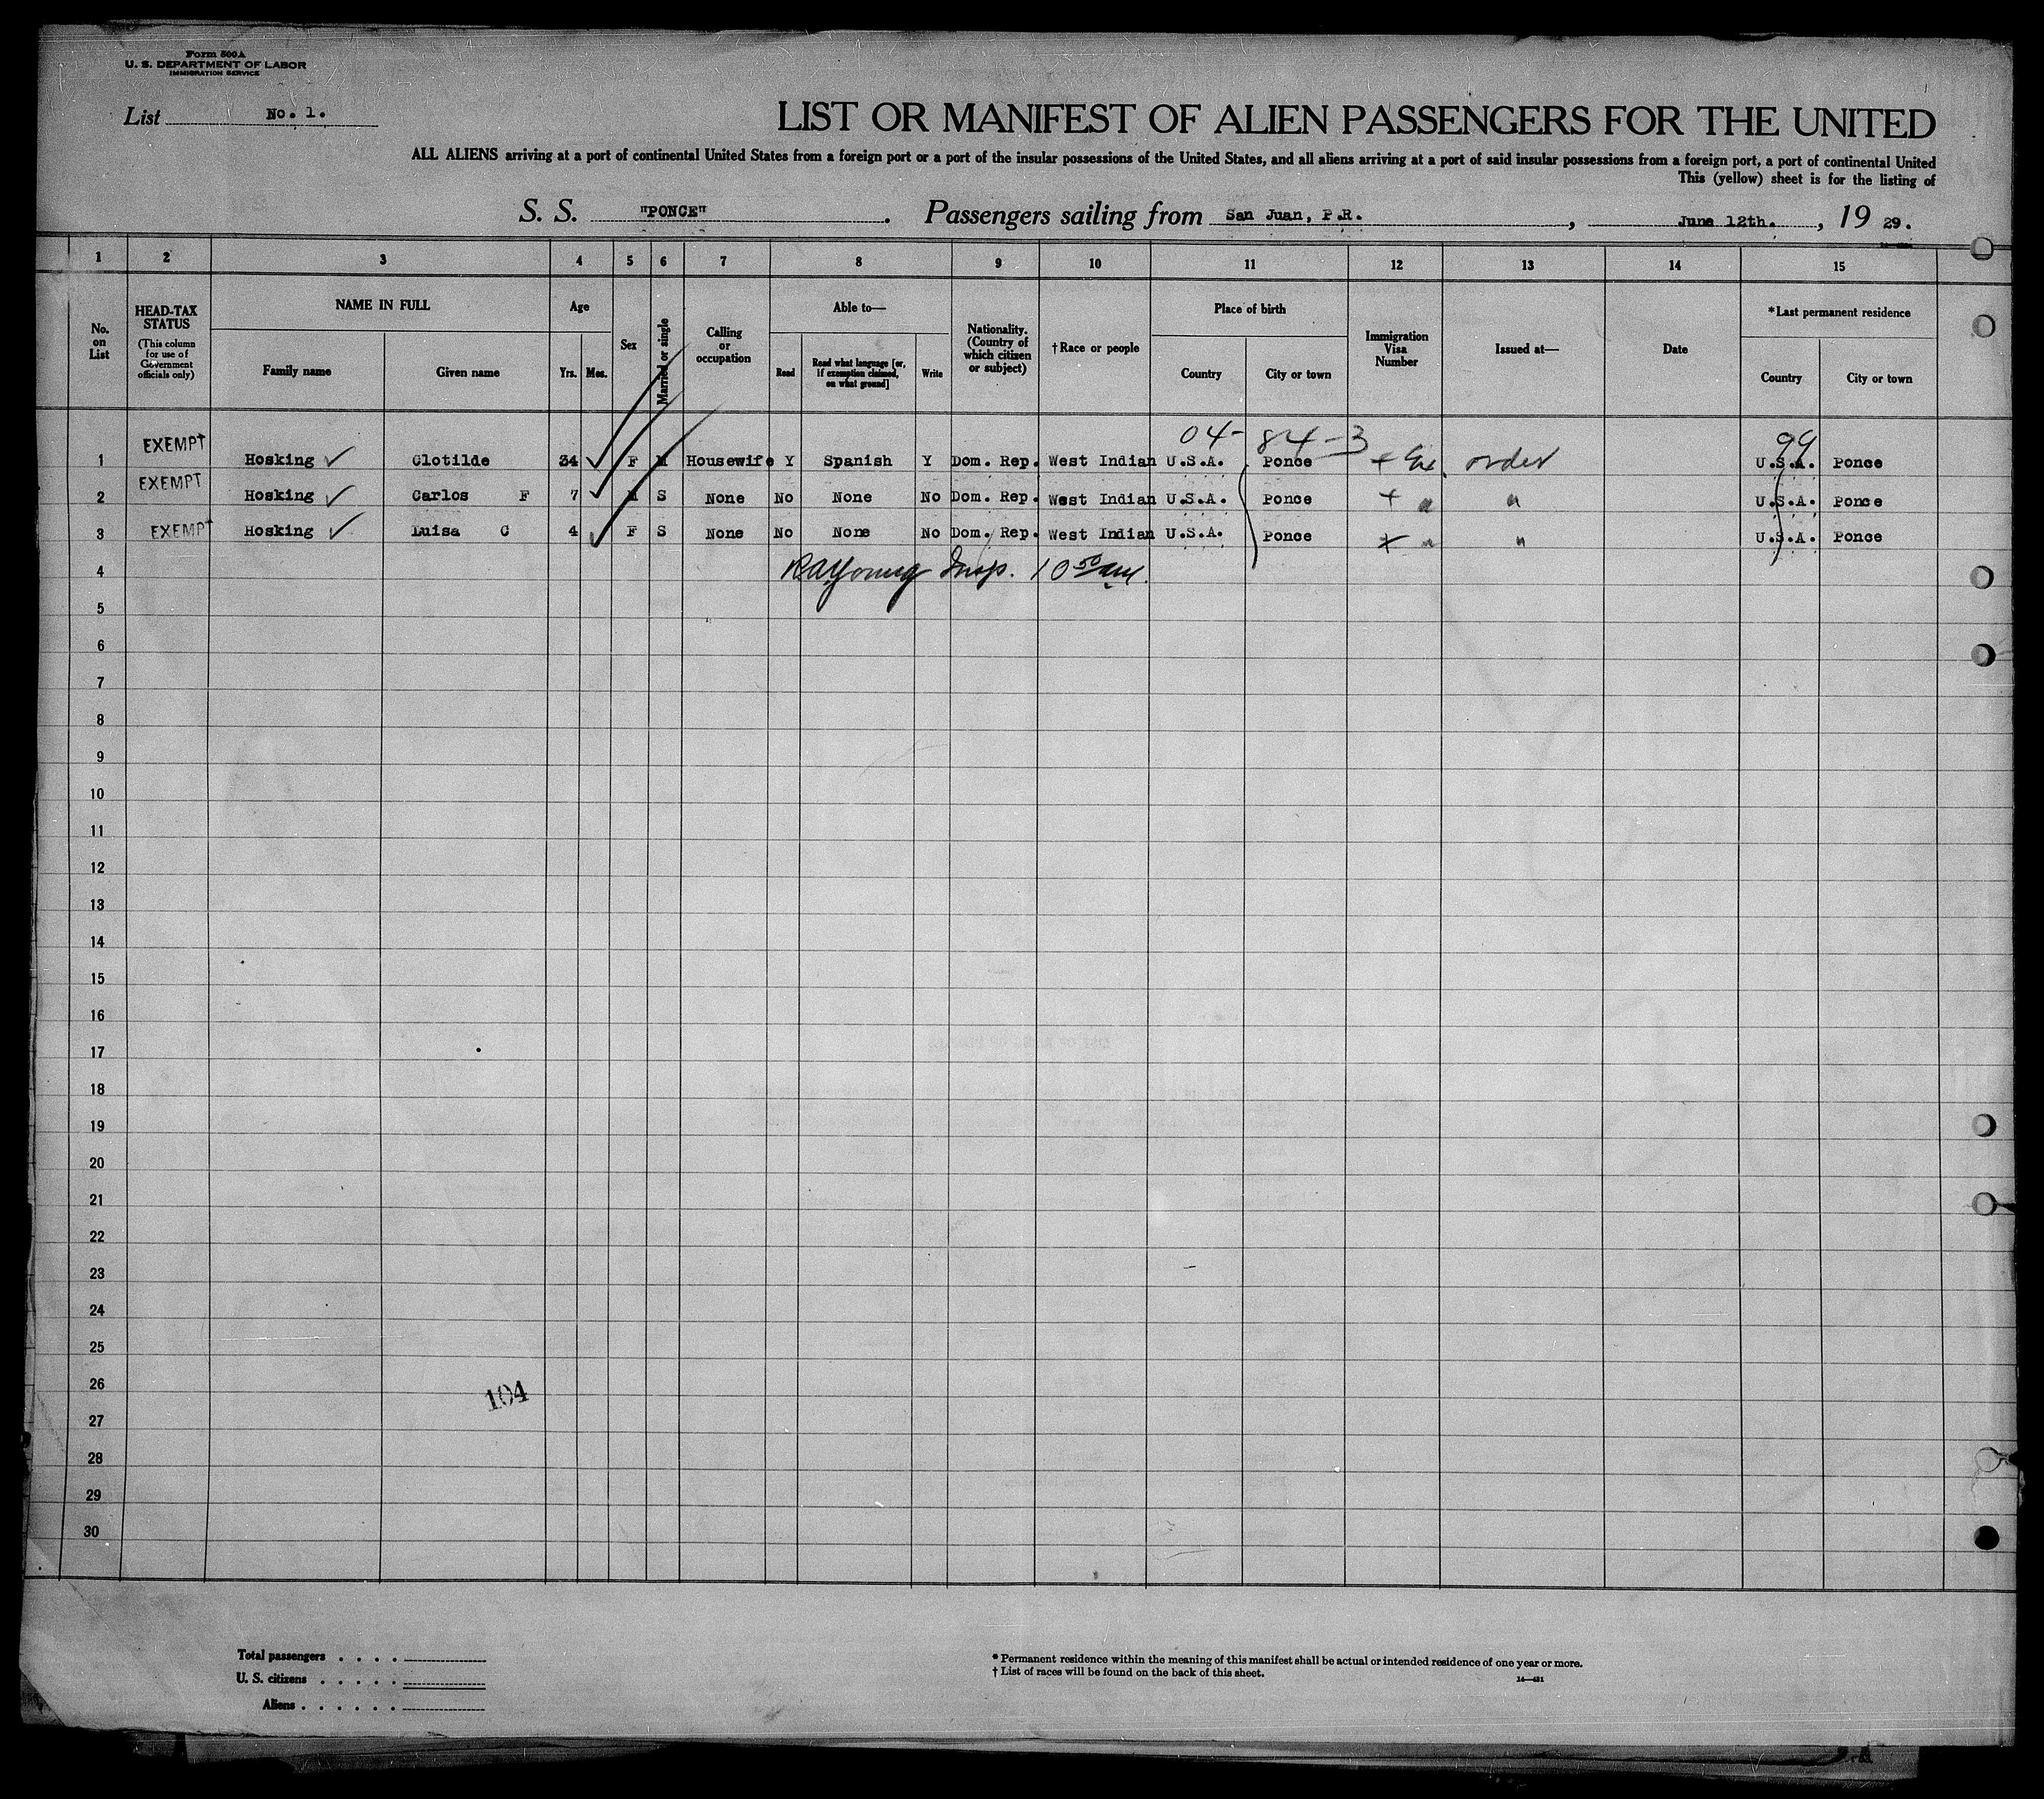 Form 500A
U. S. DEPARTMENT OF LABOR
IMMIGRATION SERVICE
List No. 1.
LIST OR MANIFEST OF ALIEN PASSENGERS FOR THE UNITED
ALL ALIENS arriving at a port of continental United States from a foreign port or a port of the insular possessions of the United States, and all aliens arriving at a port of said insular possessions from a foreign port, a port of continental United
This (yellow) sheet is for the listing of
S. S. "PONCE". Passengers sailing from San Juan, P.R., June 12th., 19 29.
1 2 3 4 5 6 7 8 9 10 11 12 13 14 15
No. on List
HEAD-TAX STATUS
(This column for use of Government officials only)
NAME IN FULL
Family name Given name
Age
Yrs. Mos.
Sex
Married or single
Calling or occupation
Able to—
Read
Read what language [or, if exemption claimed, on what ground]
Write
Nationality. (Country of which citizen or subject)
†Race or people
Place of birth
Country City or town
Immigration Visa Number
Issued at—
Date
*Last permanent residence
Country City or town
04- 84-3 99
1 EXEMPT Hosking ✓ Clotilde 34 F M Housewife Y Spanish Y Dom. Rep. West Indian U.S.A. Ponce + Ex. order U.S.A. Ponce
2 EXEMPT Hosking ✓ Carlos F 7 M S None No None No Dom. Rep. West Indian U.S.A. Ponce + " " U.S.A. Ponce
3 EXEMPT Hosking ✓ Luisa C 4 F S None No None No Dom. Rep. West Indian U.S.A. Ponce + " " U.S.A. Ponce
4 RAYoung Insp. 10 50 am.
5
6
7
8
9
10
11
12
13
14
15
16
17
18
19
20
21
22
23
24
25
26
104
27
28
29
30
Total passengers . . . .
U. S. citizens . . . . .
Aliens . . . . . .
* Permanent residence within the meaning of this manifest shall be actual or intended residence of one year or more.
† List of races will be found on the back of this sheet.
14—421